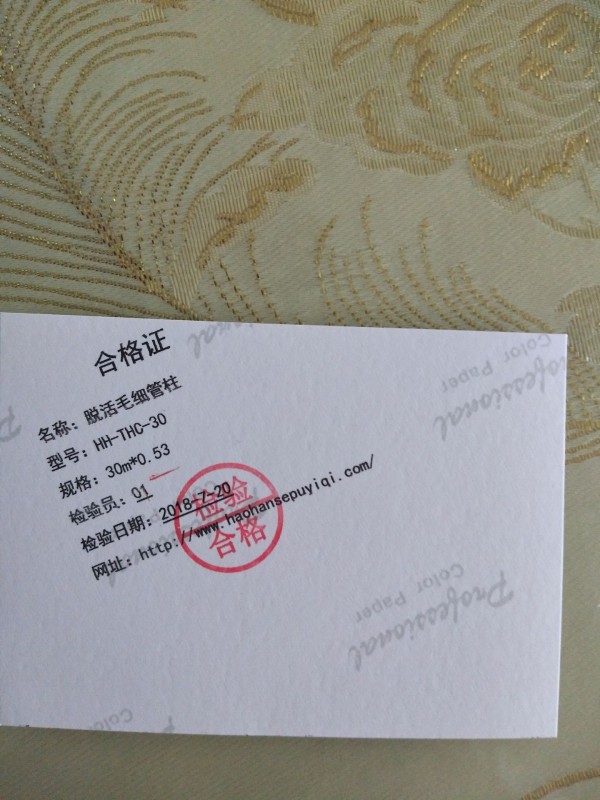 合格证
名称: 脱活毛细管柱
型号: HH-THC-30
规格: 30m*0.53
检验员: 01
检验日期: 2018-7-20
网址: http://www.haohansepuyiqi.com/
检验
合格
Professional
Color Paper
Professional
Color Paper